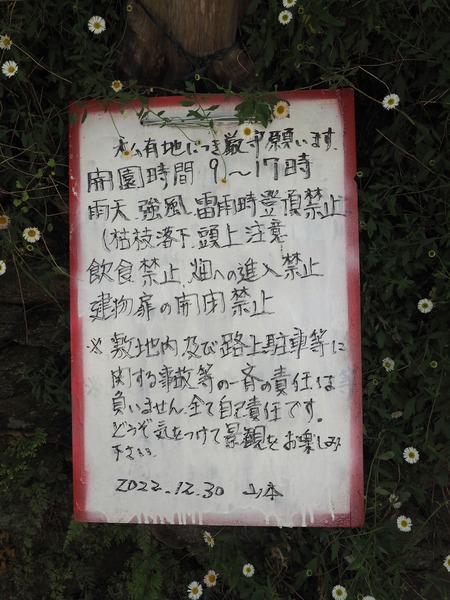 私有地につき厳守願います.
開園時間 9～17時
雨天.強風.雷雨時登頂禁止
(枯枝落下.頭上注意
飲食禁止.畑への進入禁止
建物扉の開閉禁止
※ 敷地内及び路上駐車等に
関する事故等の一斉の責任は
負いません.全て自己責任です。
どうぞ気をつけて景観をお楽しみ
下さい
2022.12.30 山本